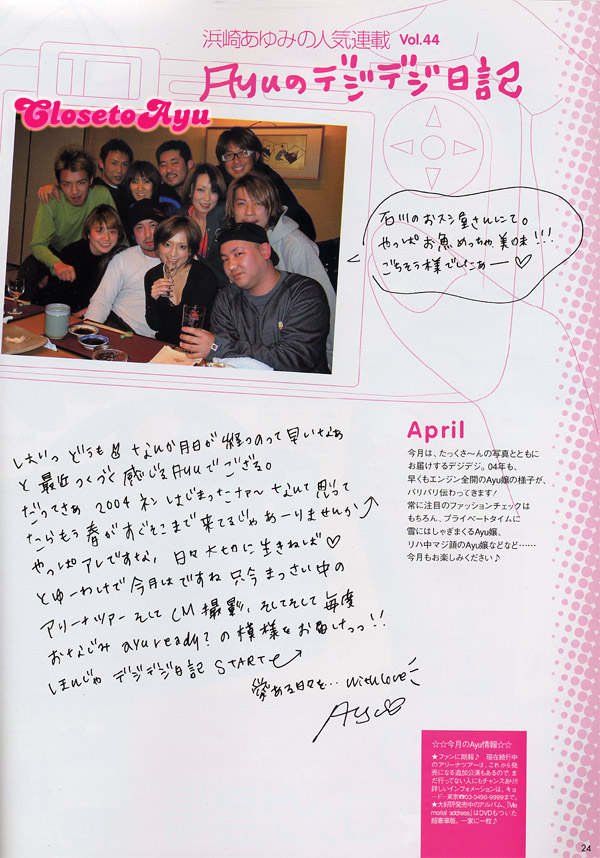 浜崎あゆみの人気連載 Vol.44
Ayuのデジデジ日記
Close to Ayu
石川のおスシ屋さんにて。
やっぱお魚めっちゃ美味!!!
ごちそう様でしたあー♡
しぇいっ どうも なんか月日が経つのって早いなぁ
と最近つくづく感じるAyuでござる。
だってさぁ 2004ネン はじまったニャァ〜なんて思って
たらもう春がすぐそこまで来てるじゃあーりませんか
やっぱアレですな、日々大切に生きねば♡
とゆーわけで今月はですね 只今まっさい中の
アリーナツアー そして CM撮影、そしてそして毎度
おなじみ ayu ready? の模様をお届けっっ!!
ほんじゃ デジデジ日記 START
愛ある日々を… with Love
Ayu♡
April
今月は、たっくさ〜んの写真とともに
お届けするデジデジ。04年も、
早くもエンジン全開のAyu嬢の様子が、
バリバリ伝わってきます!
常に注目のファッションチェックは
もちろん、プライベートタイムに
雪にはしゃぎまくるAyu嬢、
リハ中マジ顔のAyu嬢などなど……
今月もお楽しみください♪
☆☆今月のAyu情報☆☆
★ファンに朗報♪ 現在続行中
のアリーナツアーは、これから発
売になる追加公演もあるので、ま
だ行ってない人にもチャンスあり!!
詳しいインフォメーションは、キョ
ードー東京☎03-3498-9999まで。
★大好評発売中のアルバム、『Me
morial address』はDVDもついた
超豪華版。一家に一枚♪
24